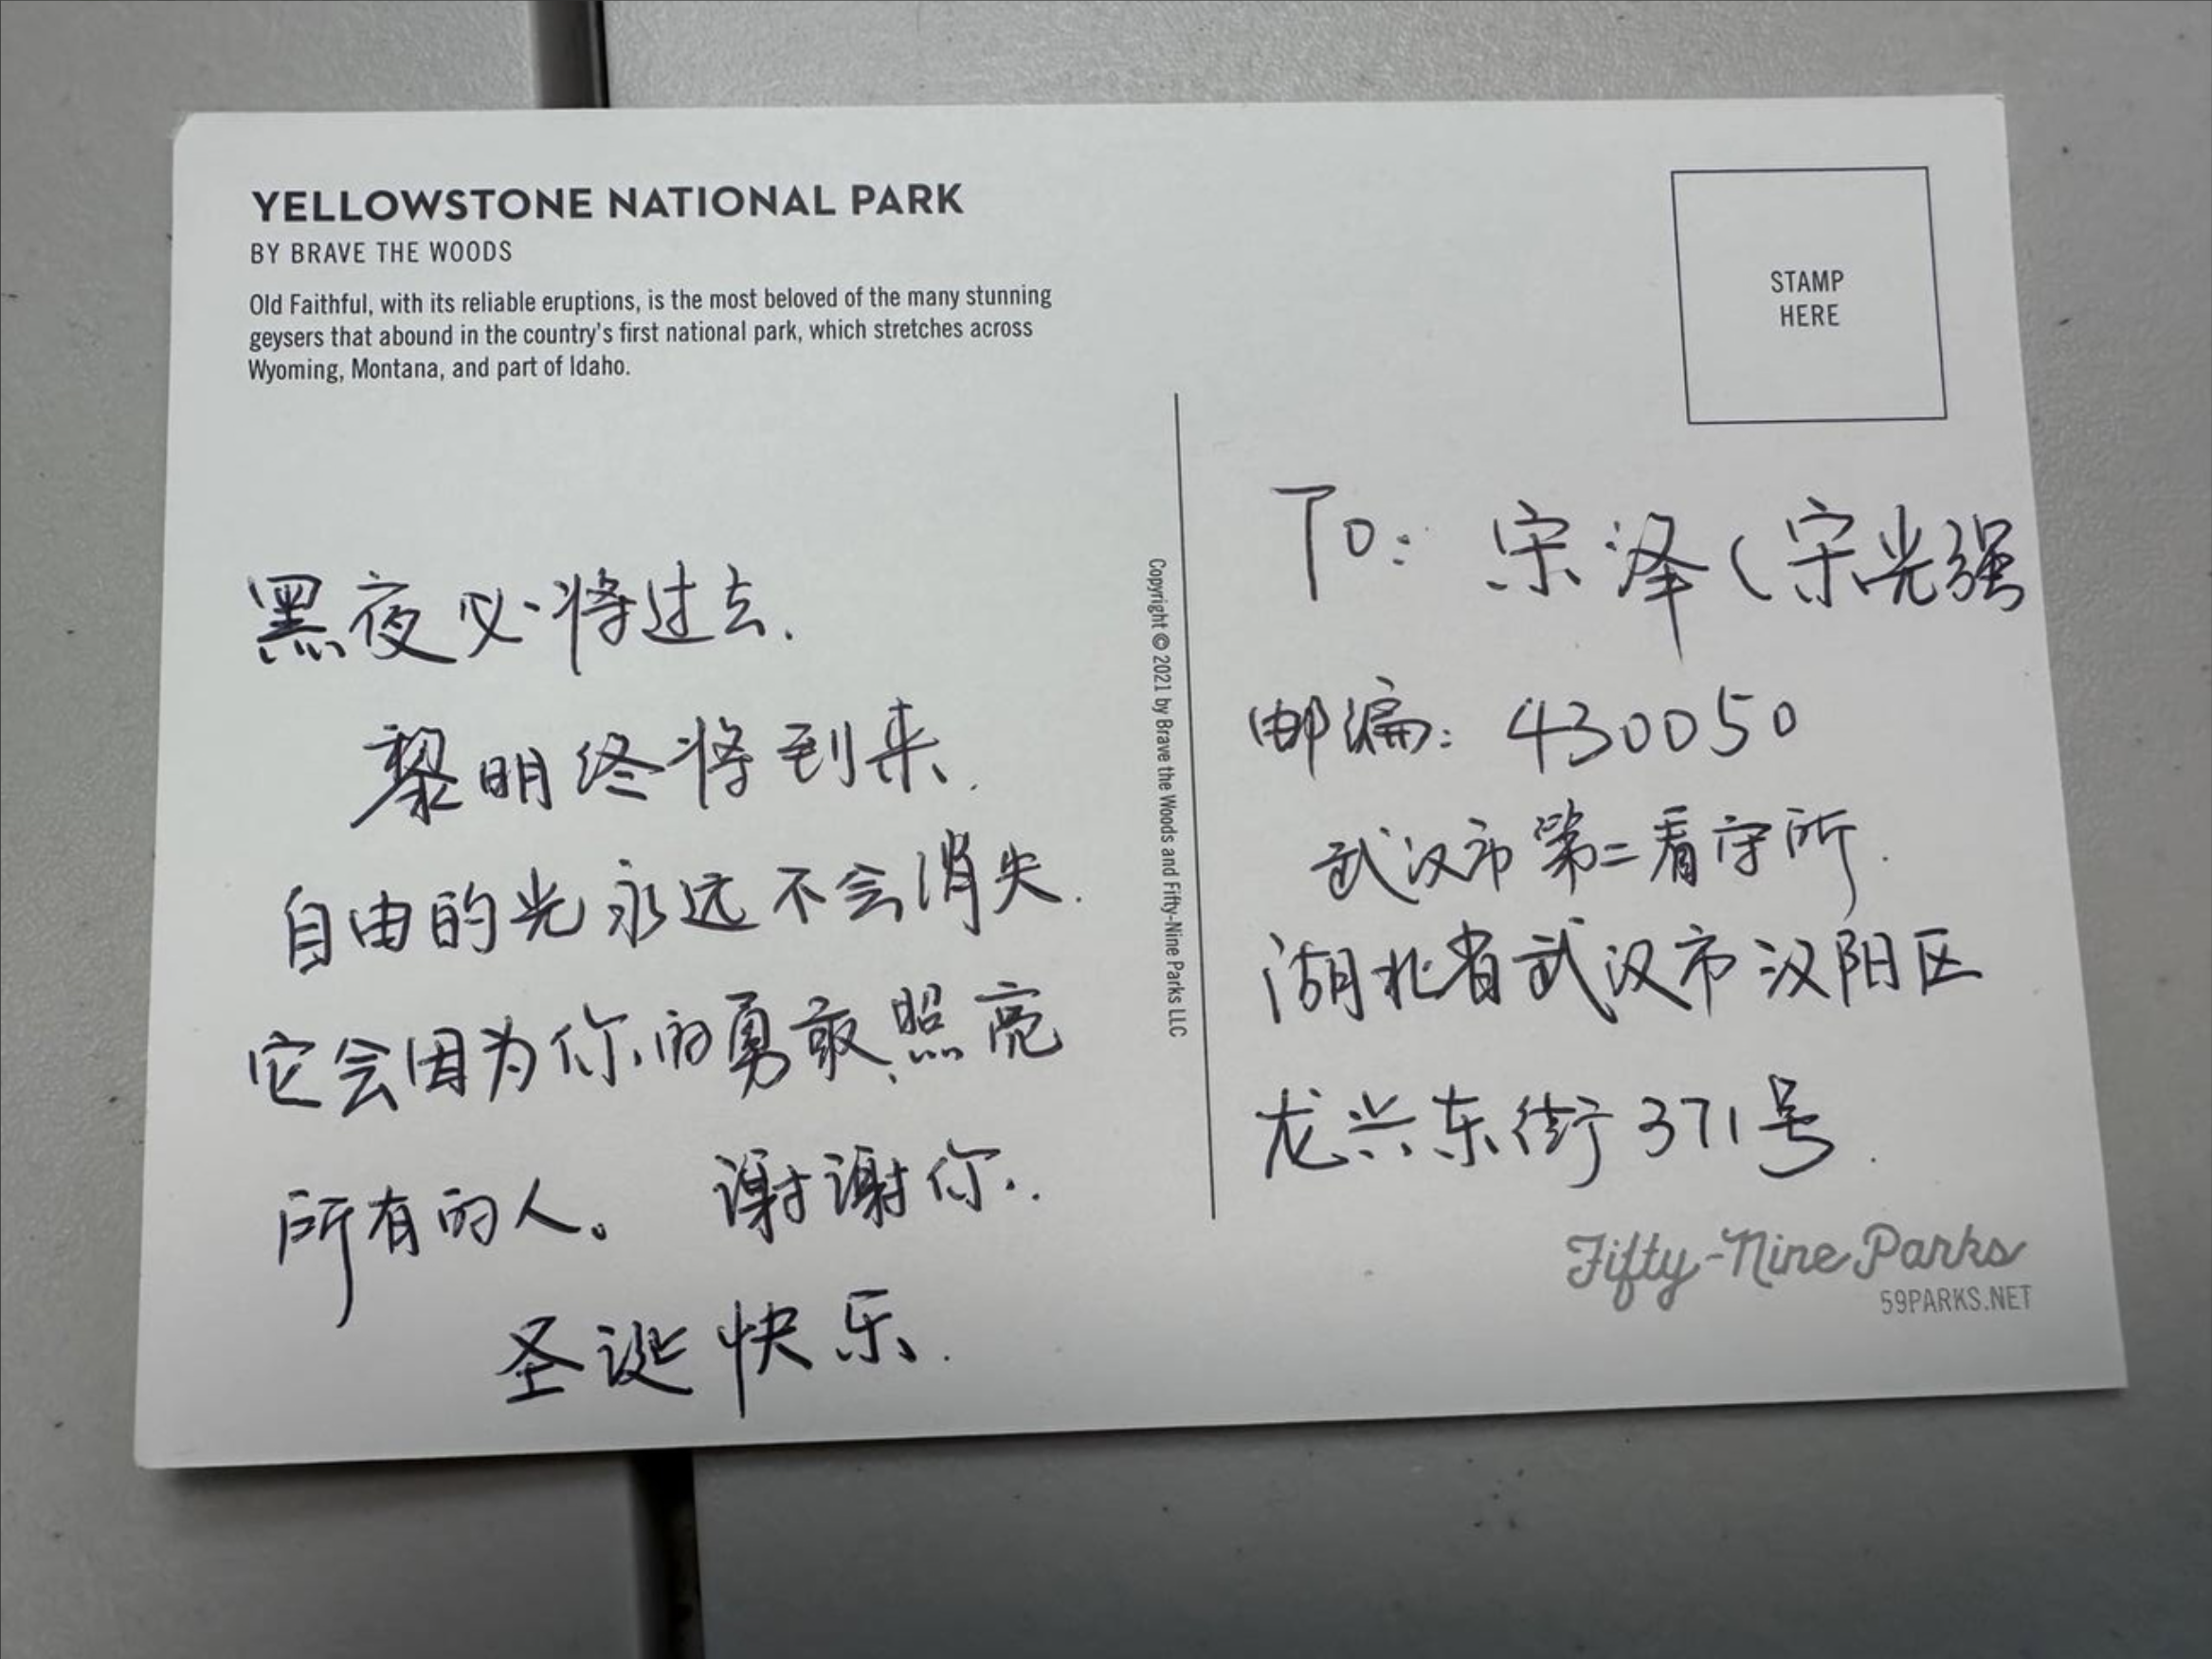 YELLOWSTONE NATIONAL PARK
BY BRAVE THE WOODS
Old Faithful, with its reliable eruptions, is the most beloved of the many stunning
geysers that abound in the country's first national park, which stretches across
Wyoming, Montana, and part of Idaho.
黑夜必将过去.
黎明终将到来.
自由的光永远不会消失.
它会因为你的勇敢.照亮
所有的人。 谢谢你..
圣诞快乐.
Copyright © 2021 by Brave the Woods and Fifty-Nine Parks LLC
STAMP
HERE
To: 宋泽(宋光强
邮编: 430050
武汉市第二看守所.
湖北省武汉市汉阳区
龙兴东街371号.
Fifty-Nine Parks
59PARKS.NET